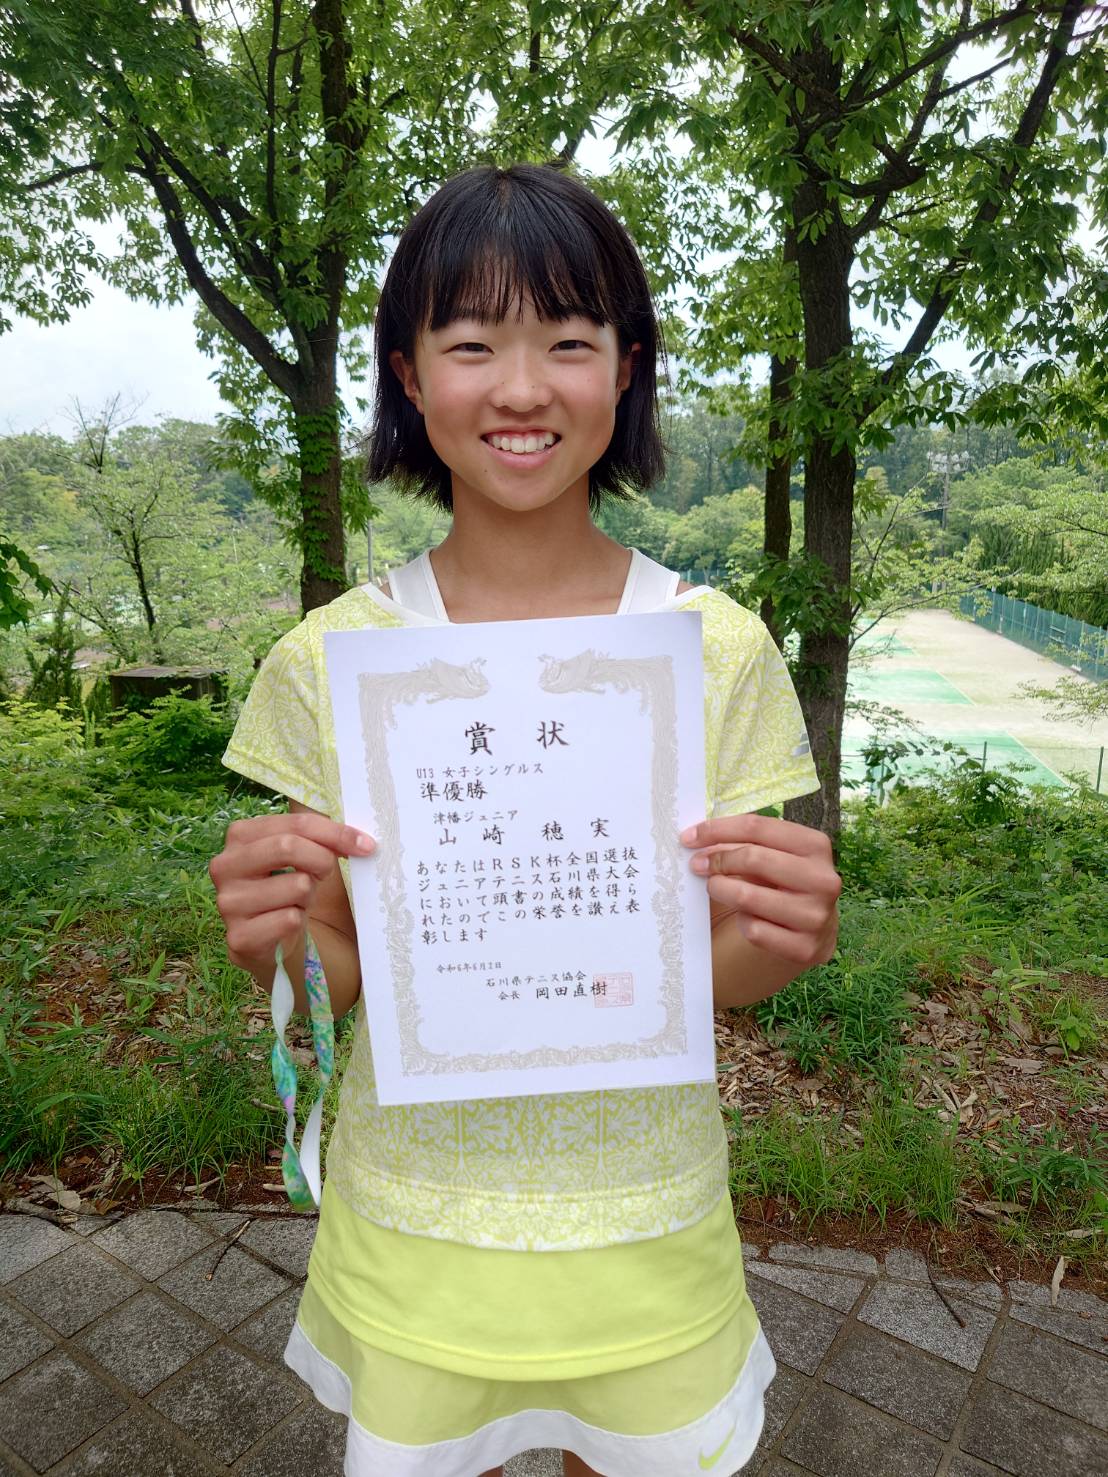 賞 状
U13 女子シングルス
準優勝
津幡ジュニア
山 崎 穂 実
あなたはRSK杯全国選抜
ジュニアテニス石川県大会
において頭書の成績を得ら
れたのでこの栄誉を讃え表
彰します
令和6年6月2日
石川県テニス協会
会長 岡田直樹